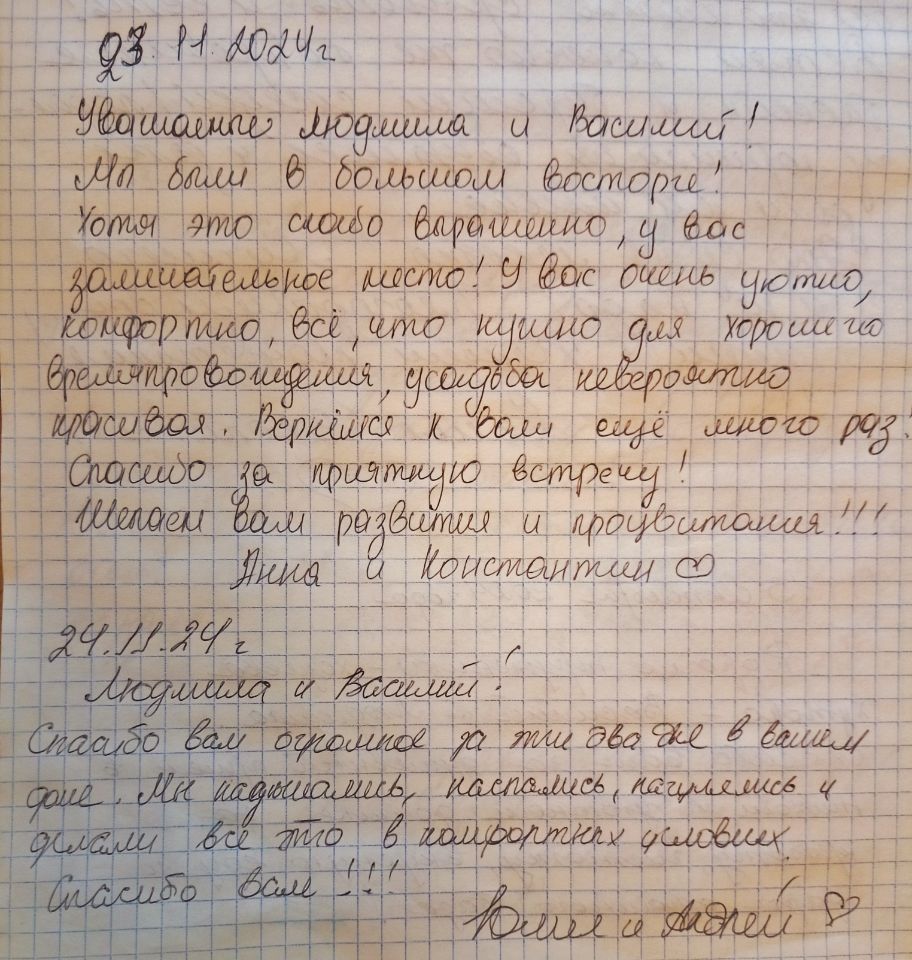 23.11.2024г
Уважаемые Людмила и Василий!
Мы были в большом восторге!
Хотя это слабо выраженно, у вас
замичательное место! У вас очень уютно,
комфортно, всё, что нужно для хорошего
времяпровождения, усадьба невероятно
красивая. Вернёмся к вам ещё много раз!
Спасибо за приятную встречу!
Желаем вам развития и процвитания!!!
Анна и Константин ♡
24.11.24г
Людмила и Василий!
Спасибо вам огромное за эти два дне в вашем
доме. Мы надышались, наспались, нагулялись и
делали всё это в комфортных условиях.
Спасибо вам!!!
Юлия и Андрей ♡